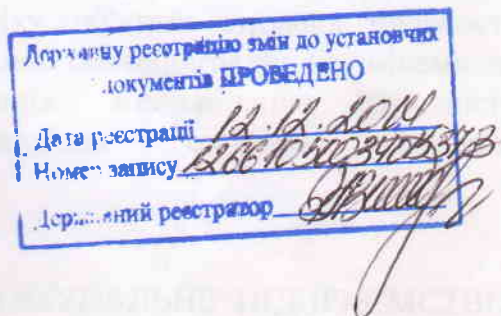 Державну реєстрацію змін до установчих
документів ПРОВЕДЕНО
Дата реєстрації 12.12.2014
Номер запису
Державний реєстратор